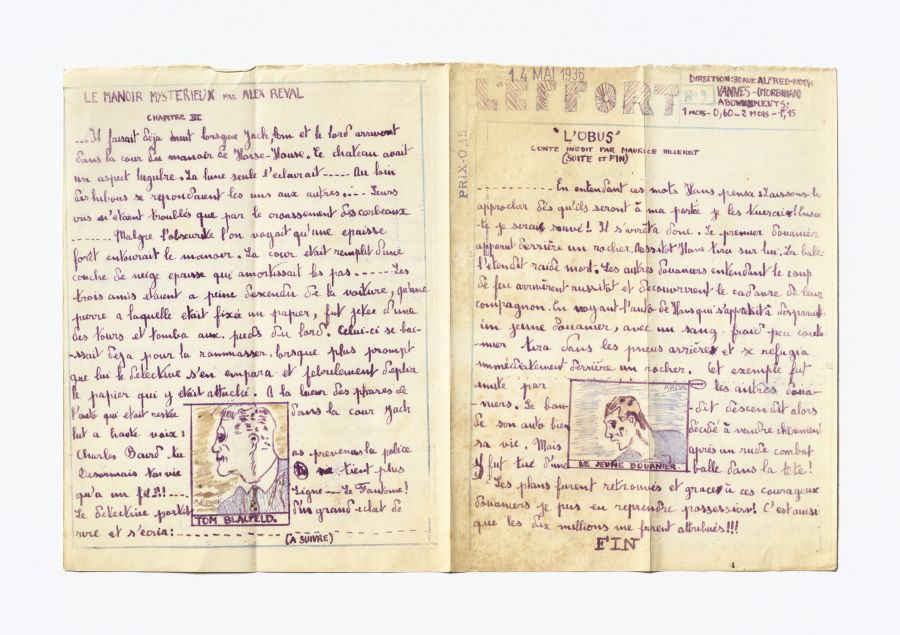 LE MANOIR MYSTERIEUX PAR ALEX REVAL
CHAPITRE III
...Il faisait deja nuit lorsque Jack, tom et le lord arriverent
dans la cour du manoir de Horse-House. Le chateau avait
un aspect lugubre. La lune seule l'eclairait----- Au loin
des hiboux se repondaient les uns aux autres... - Leurs
cris n'etaient troublés que par le croassement des corbeaux
------- Malgre l'obscurité l'on voyait qu'une epaisse
forêt entourait le manoir. La cour etait remplit d'une
couche de neige epaisse qui amortissait les pas-----Les
trois amis etaient a peine descendu de la voiture, qu'une
pierre a laquelle etait fixée un papier, fut jetée d'une
des tours et tomba aux pieds du lord. Celui-ci se bais-
-ssait deja pour la rammasser, lorsque plus prompt
que lui le detective s'en empara et febrilement deplia
le papier qui y était attaché. A la lueur des phares de
l'auto qui était restée dans la cour Jack
lut a haute voix:
Charles Baird tu as prevenu la police
Desormais ta vie ne tient plus
qu'a un fil!!! --- Signe --- Le Fantome!
Le detective partit d'un grand eclat de
rire et s'ecria:
TOM BLALFELD.
(A SUIVRE)
14 MAI 1936
L'EFFORT
N° 9
PRIX-0,15
DIRECTION: 30 AVE ALFRED-ROTH
VANNES-(MORBIHAN)
ABONNMENTS:
1 MOIS-0,60-2 MOIS-1,15
"L'OBUS"
CONTE INEDIT PAR MAURICE HILLERET
(SUITE ET FIN)
---------- En entendant ces mots Hans pensa: Laissons-les
approcher dés qu'ils seront à ma portée je les tuerais! Ensui-
te je serais sauvé! Il s'arrêta donc. Le premier douanier
apparut derrière un rocher. Aussitot Hans tira sur lui. La balle
l'etendit raide mort. Les autres douaniers entendant le coup
de feu arrivèrent aussitôt et decouvrirent le cadavre de leur
compagnon. En voyant l'auto de Hans qui s'appretait à disparaitre
un jeune douanier, avec un sang-froid peu coutu-
-mier tira dans les pneus arrières et se refugia
immédiatement derrière un rocher. Cet exemple fut
imité par les autres doua-
niers. Le ban- -dit descendit alors
de son auto bien décidé à vendre chèrement
sa vie. Mais après un rude combat
il fut tué d'une balle dans la tete!
LE JEUNE DOUANIER.
Les plans furent retrouvés et graces à ces courageux
douaniers je pus en reprendre possession! C'est ainsi
que les dix millions me furent attribués!!!
FIN